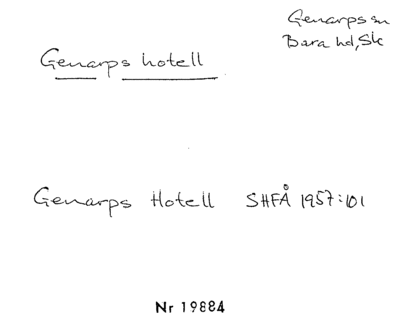 Genarps sn
Bara hd, Sk
Genarps hotell
Genarps Hotell SHFÅ 1957:101
Nr 19884